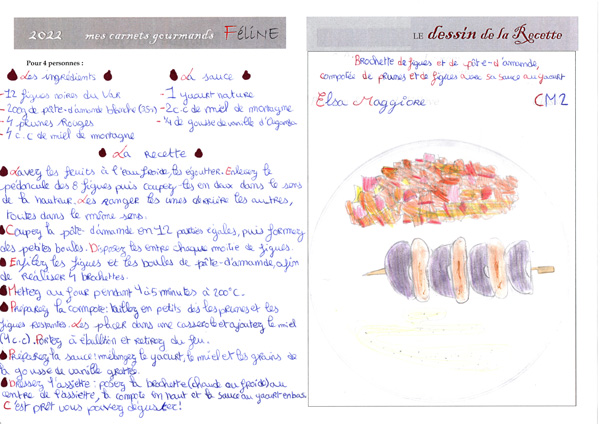 2022 mes carnets gourmands FéLiNE
Pour 4 personnes :
Les ingrédients
-12 figues noires du Var
-200g de pâte d'amande blanche
-4 prunes Rouges
-4 c.c de miel de montagne
La sauce
-1 yaourt nature
-2c.c de miel de montagne
-¼ de gousse de vanille d'Uganda
La recette
Lavez les fruits à l'eau froide, les égoutter. Enlevez le
pédoncule des 8 figues puis coupez-les en deux dans le sens
de la hauteur. Les ranger les unes derrière les autres,
toutes dans le même sens.
Coupez la pâte d'amande en 12 parties égales, puis formez
des petites boules. Disposez les entre chaque moitié de figues.
Enfilez les figues et les boules de pâte d'amande, afin
de réaliser 4 brochettes.
Mettez au four pendant 4 à 5 minutes à 200°c.
Préparez la compote: taillez en petits dés les prunes et les
figues restantes. Les placer dans une casserole et ajoutez le miel
(4 c.c). Portez à ébullition et retirez du feu.
Préparez la sauce: mélangez le yaourt, le miel et les grains de
la gousse de vanille grattée.
Dressez l'assiette: posez la brochette (chaude ou froide) au
centre de l'assiette, la compote en haut et la sauce au yaourt en bas.
C'est prêt vous pouvez déguster!
LE dessin de la Recette
Brochette de figues et de pâte d'amande,
compotée de prunes et de figues avec sa sauce au yaourt
Elsa Maggiore CM2